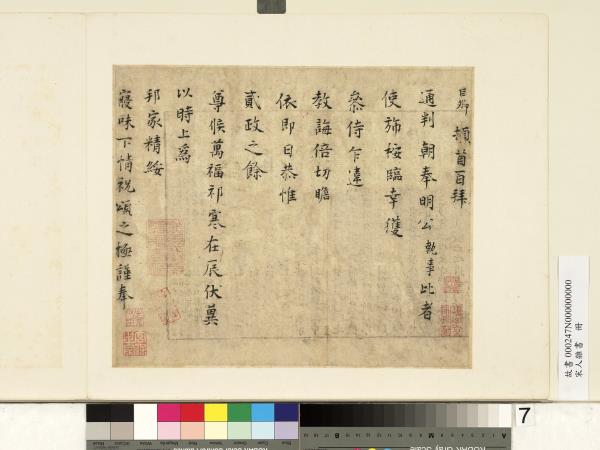 頓首百拜
通判朝奉明公執事比者
使斾稅臨幸獲
叅侍乍遠
教誨倍切瞻
依即日恭惟
貳政之餘
尊候萬福祁寒在辰伏冀
以時上為
邦家精綏
寢味下情祝頌之極謹奉
故書000247N000000000
宋人雜書 冊
7